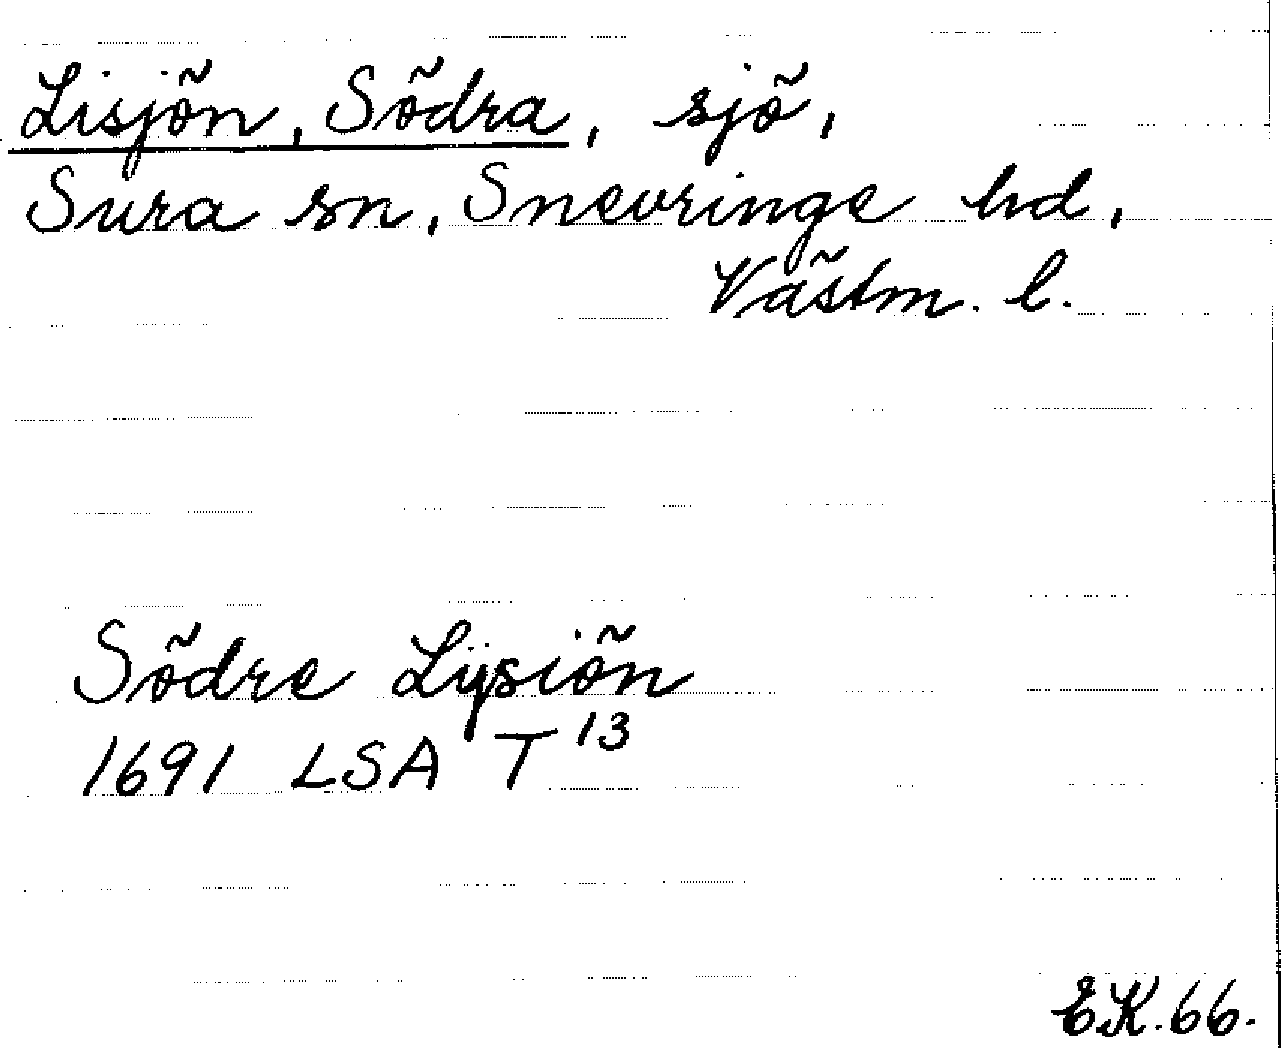 Lisjön, Södra, sjö,
Sura sn, Snevringe hd,
Västm. l.
Södre Lÿsiön
1691 LSA T 13
EK. 66.